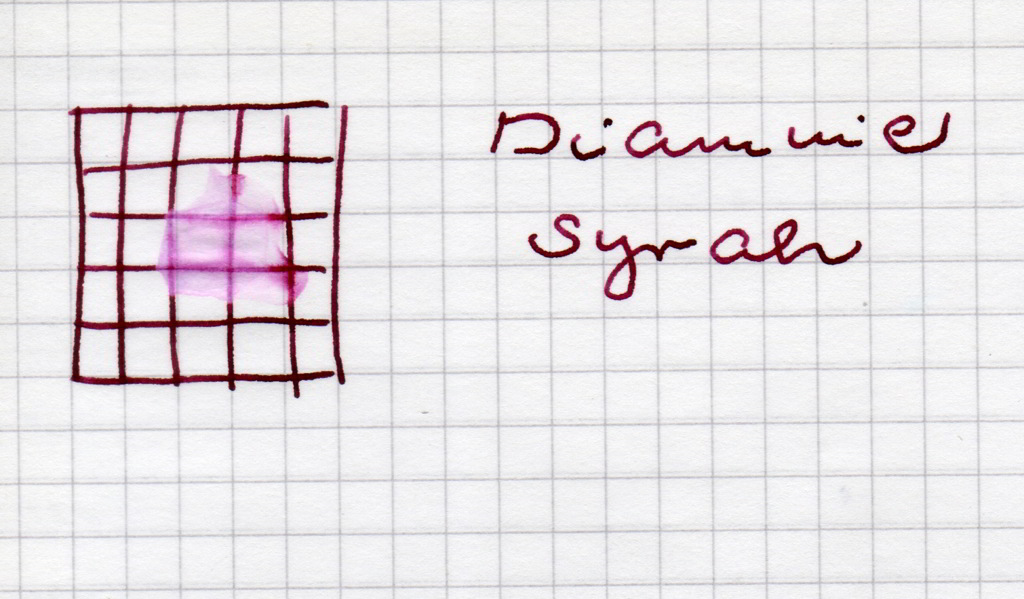 Diamine
Syrah